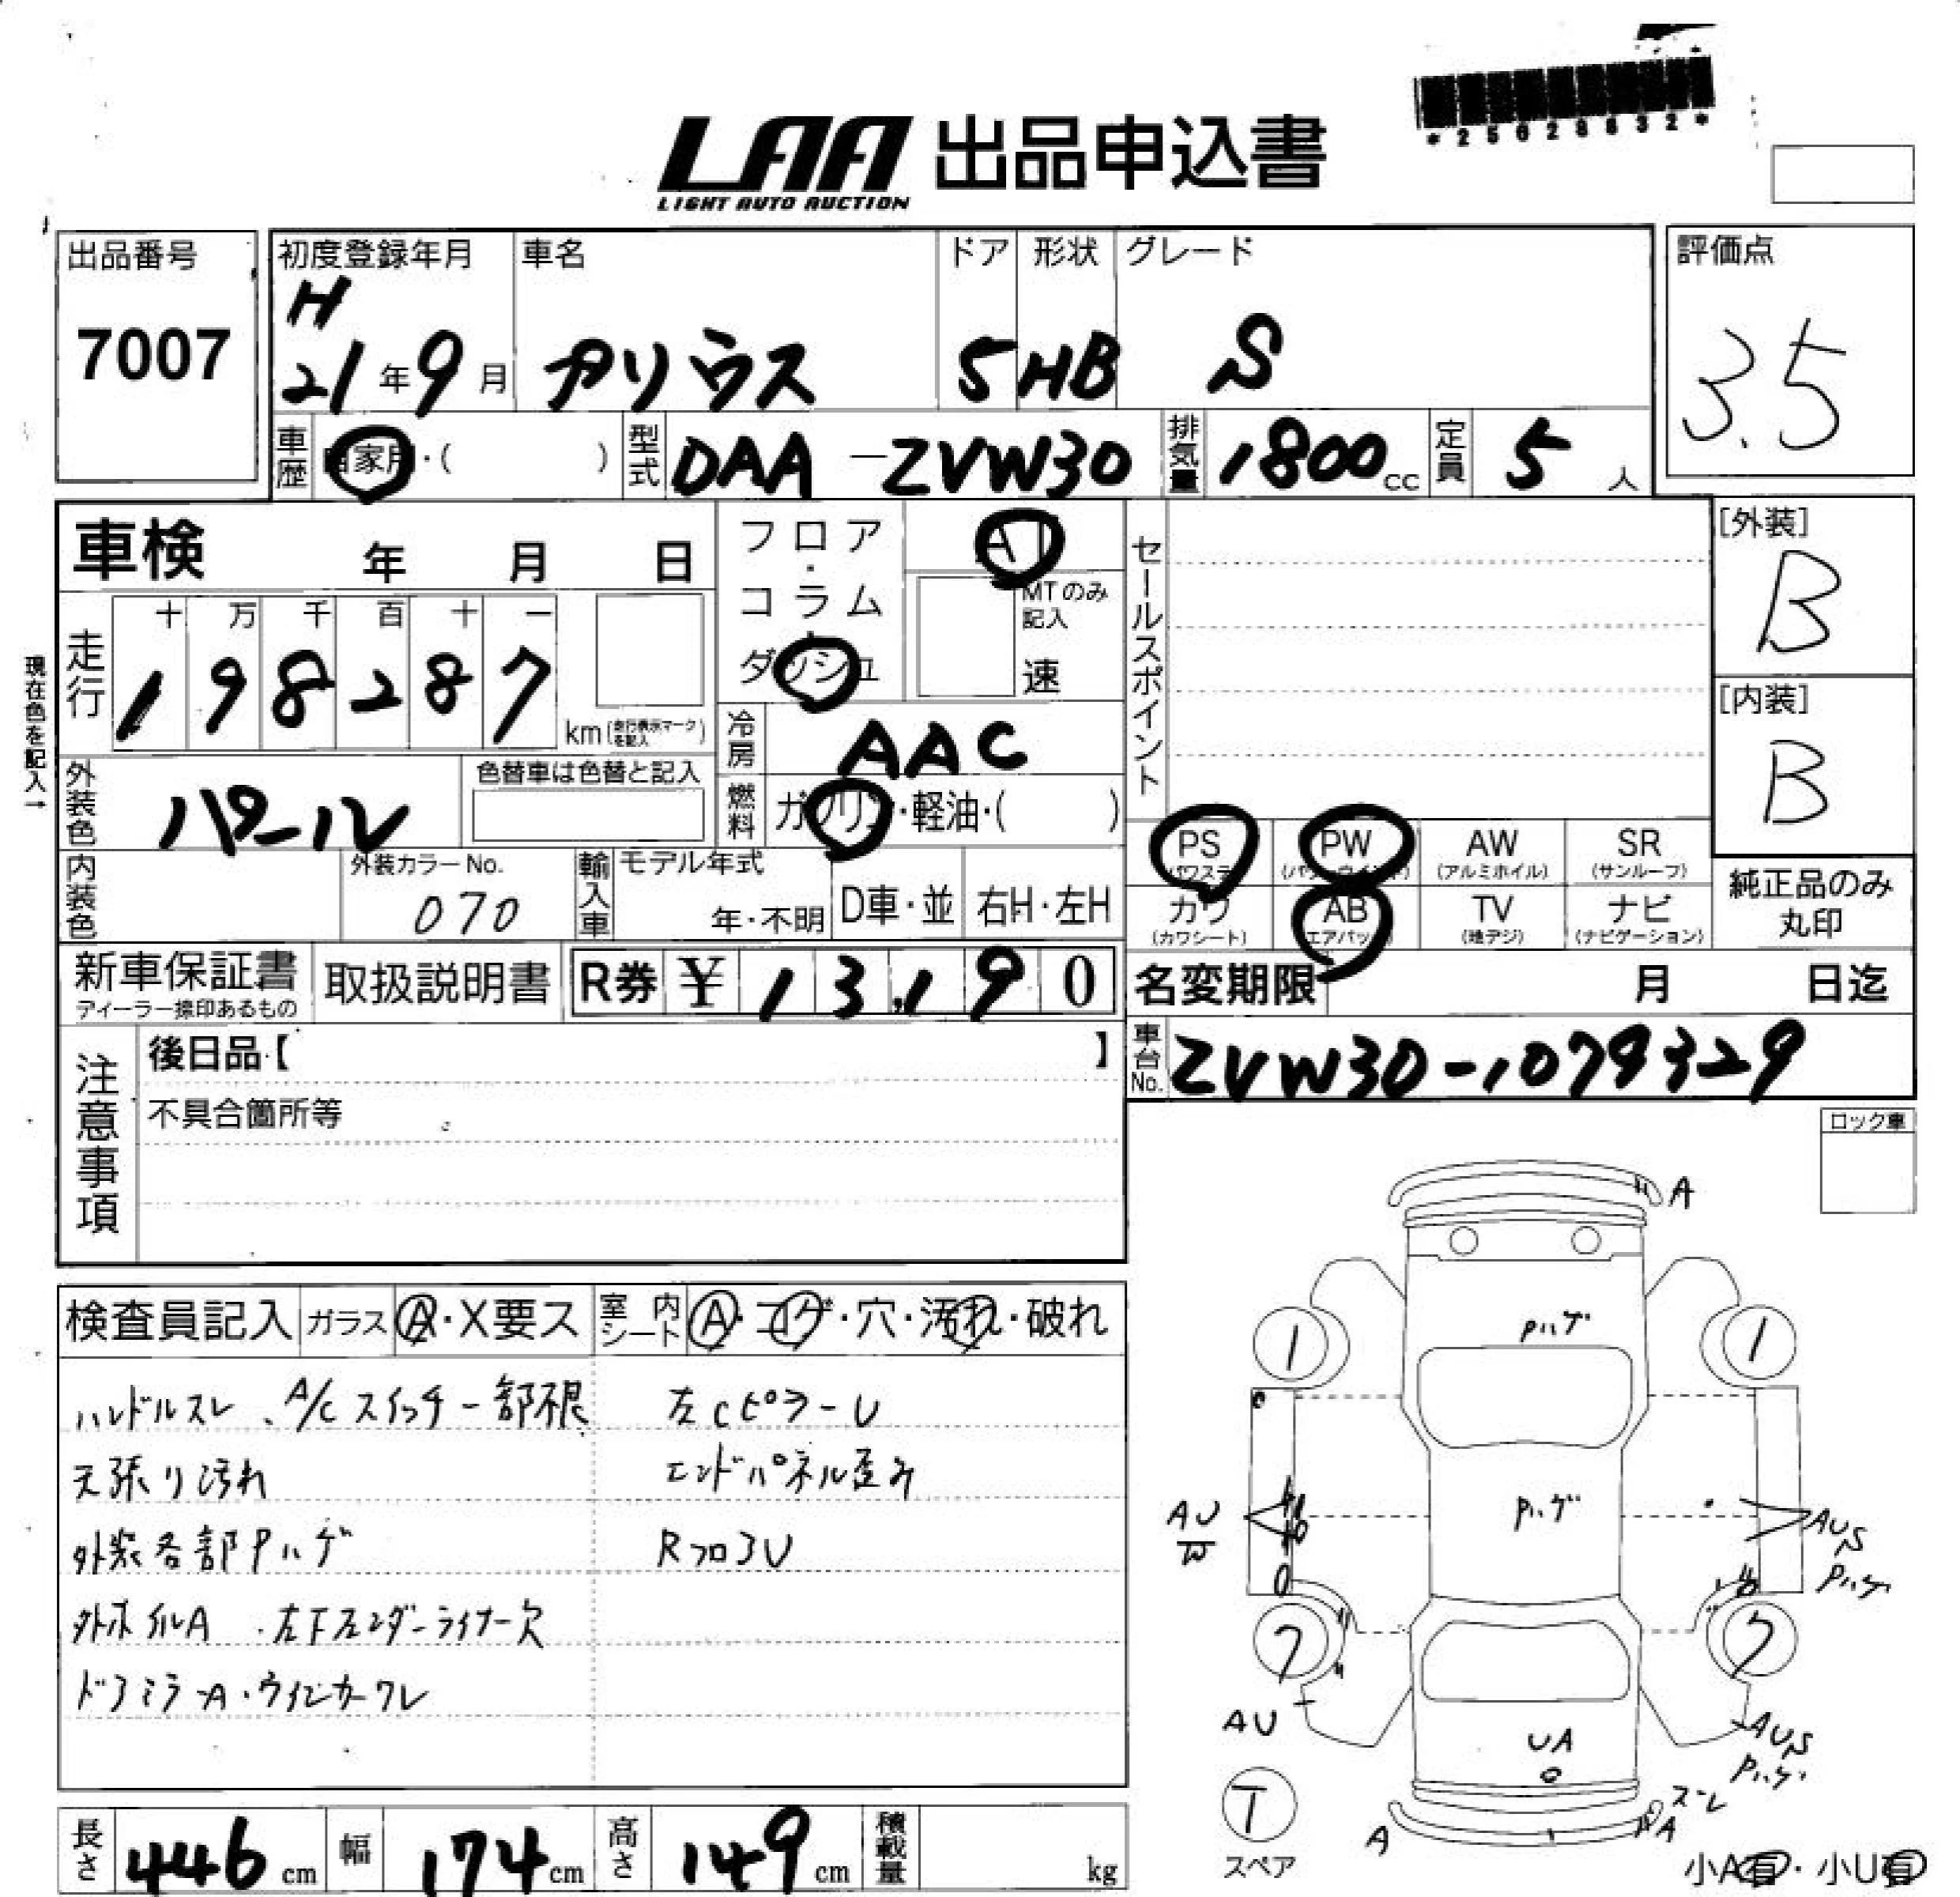 *25628632*
LAA 出品申込書
LIGHT AUTO AUCTION
出品番号
7007
初度登録年月
H
21年9月
車名
プリウス
ドア
5
形状
HB
グレード
S
評価点
3.5
車歴 自家用・( )
型式 DAA-ZVW30
排気量 1800cc
定員 5人
車検 年 月 日
フロア・コラム・ダッシュ
AT
MTのみ記入
速
セールスポイント
[外装]
B
[内装]
B
現在色を記入→
走行
十 万 千 百 十 一
1 9 8 2 8 7
km(走行表示マークを記入)
冷房 AAC
外装色 パール
色替車は色替と記入
燃料 ガソリン・軽油・( )
内装色
外装カラーNo.
070
輸入車
モデル年式
年・不明
D車・並
右H・左H
PS (パワステ)
PW (パワーウインド)
AW (アルミホイル)
SR (サンルーフ)
カワ (カワシート)
AB (エアバッグ)
TV (地デジ)
ナビ (ナビゲーション)
純正品のみ
丸印
新車保証書
ディーラー捺印あるもの
取扱説明書
R券 ¥ 13,190
名変期限 月 日迄
車台No. ZVW30-1079329
注意事項
後日品【 】
不具合箇所等
ロック車
検査員記入
ガラス A・X要ス
室内シート A・コゲ・穴・汚れ・破れ
ハンドルスレ、A/Cスイッチ一部不良
左CピラーU
天張り汚れ
エンドパネル歪み
外装各部Pハゲ
RフロアU
外ホイルA・左Fフェンダーライナー欠
ドアミラーA・ウインカーワレ
A
Pハゲ
1
1
Pハゲ
AU
W
AUS
Pハゲ
7
7
AU
UA
AUS
Pハゲ
スレ
A
A
T
スペア
小A有・小U有
長さ 446cm
幅 174cm
高さ 149cm
積載量 kg